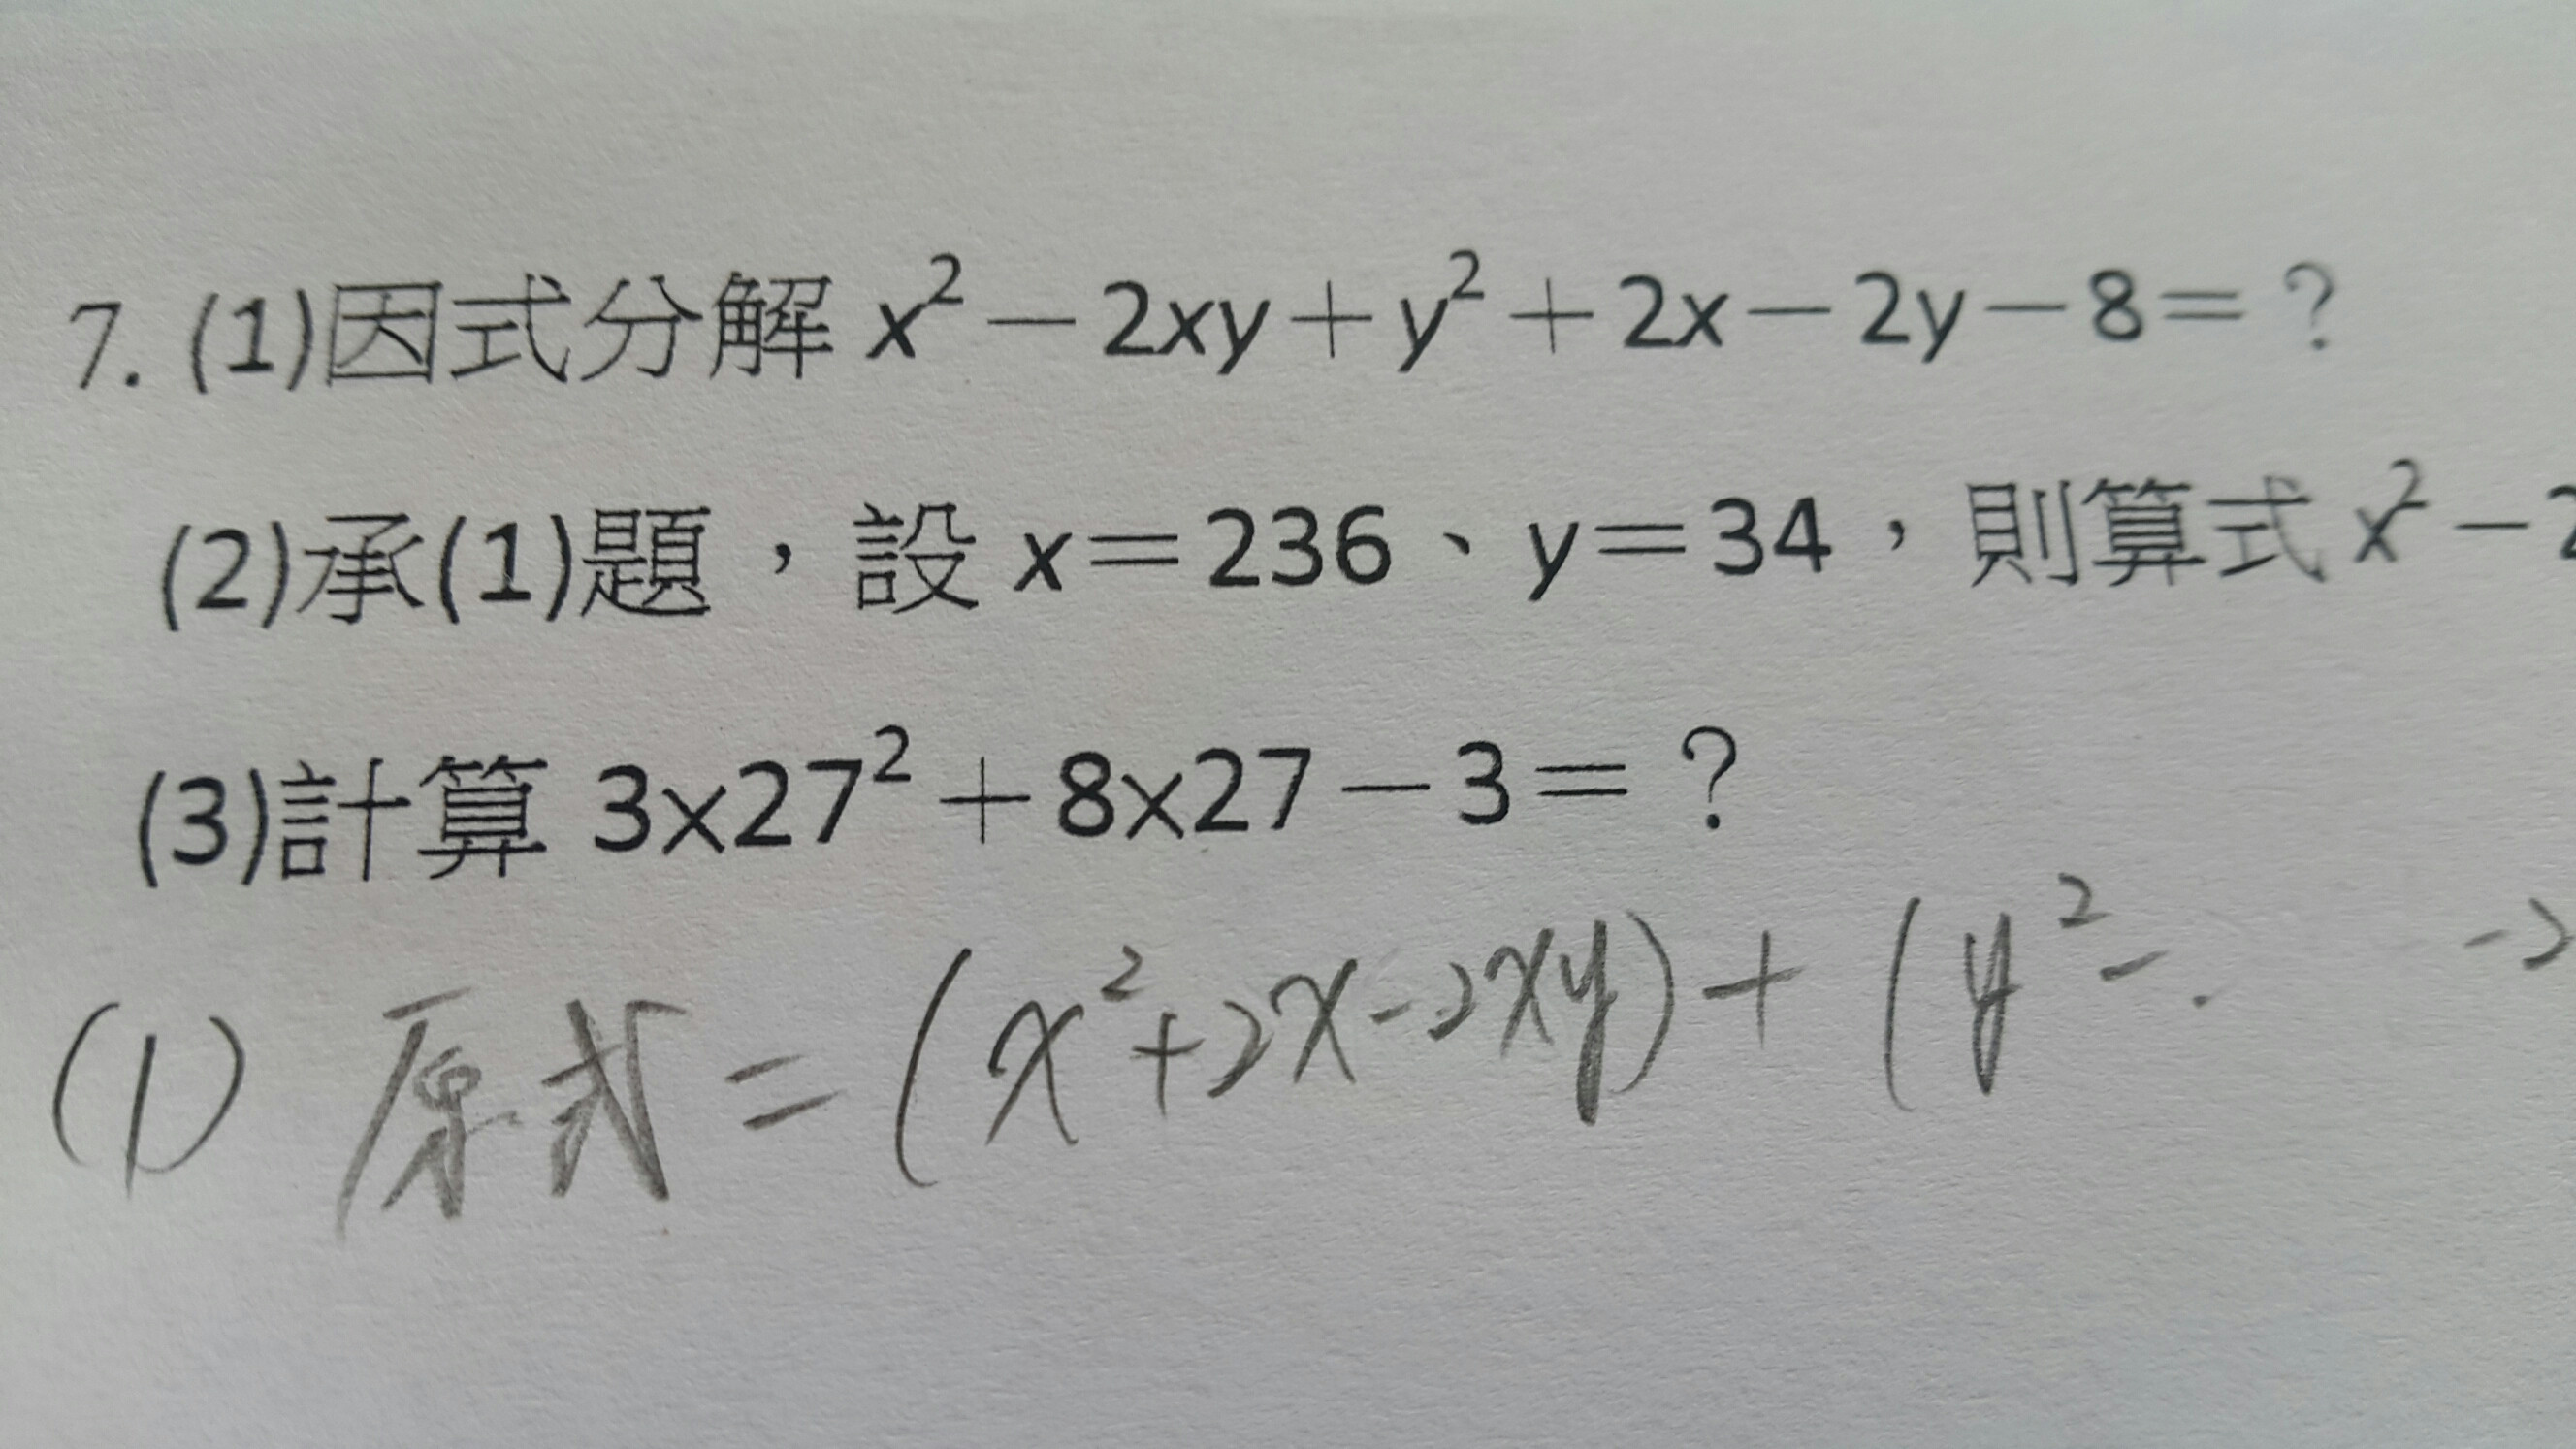 7. (1)因式分解 x² − 2xy + y² + 2x − 2y − 8 = ?
(2)承(1)題，設 x = 236、y = 34，則算式 x² − 2
(3)計算 3x27² + 8x27 − 3 = ?
(1) 原式 = (x² + 2x − 2xy) + (y² − −2